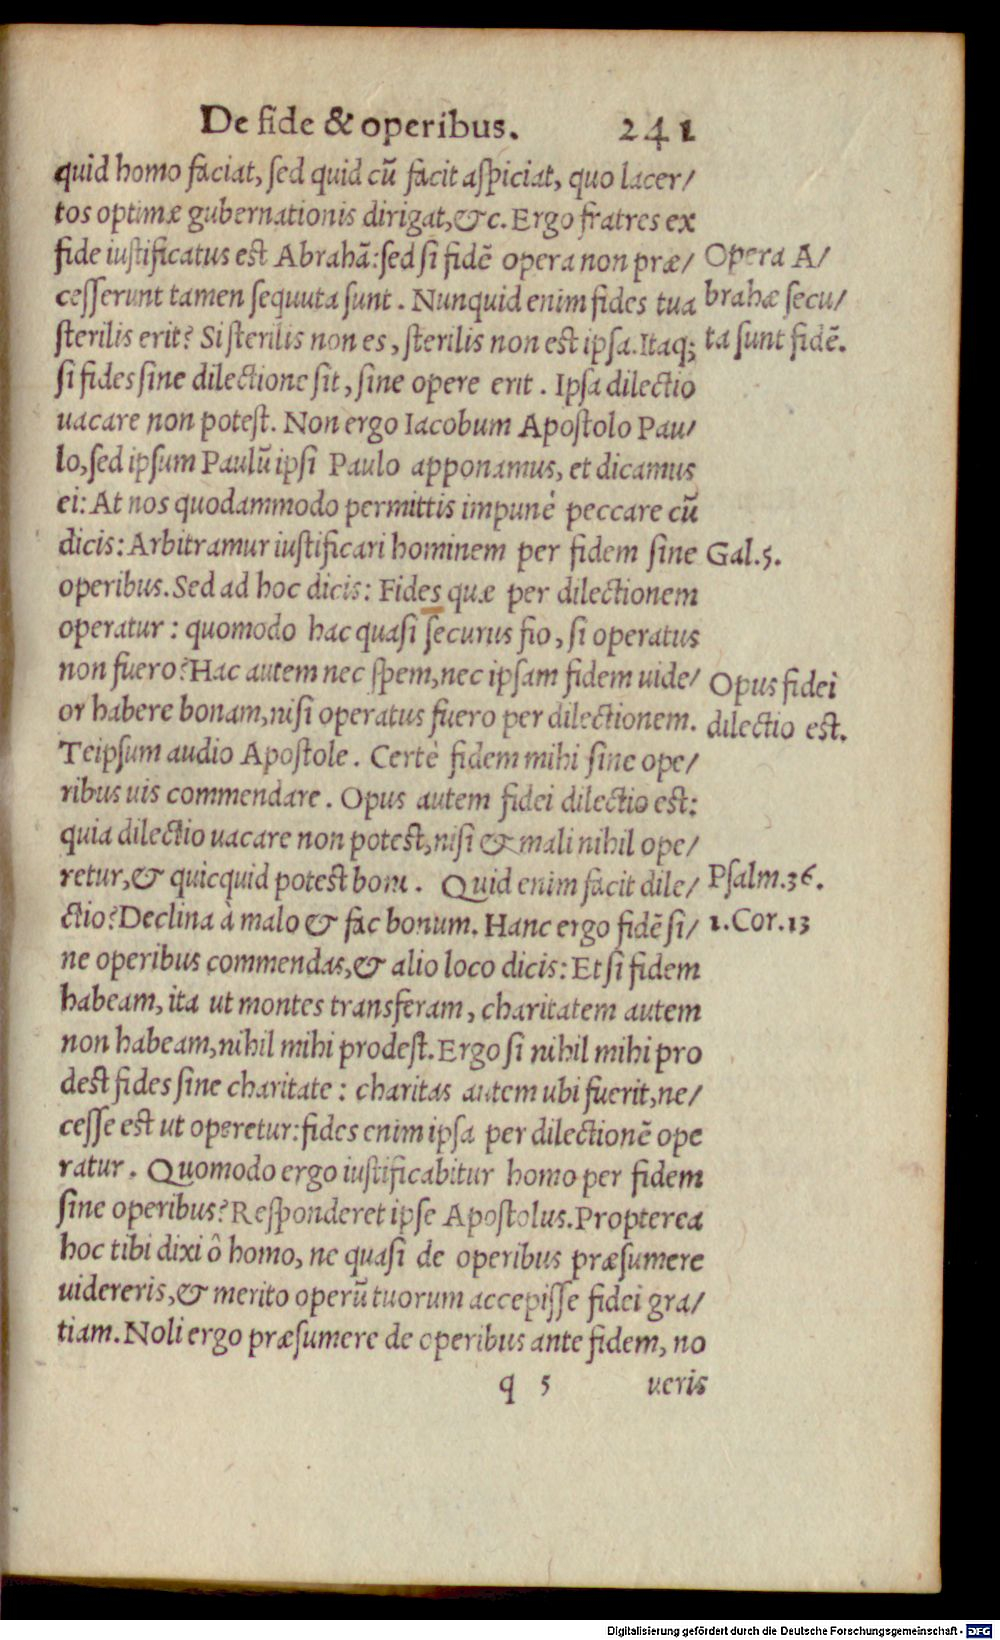 De fide & operibus. 241
quid homo faciat, sed quid cū facit aspiciat, quo lacer/
tos optimæ gubernationis dirigat, &c. Ergo fratres ex
fide iustificatus est Abrahā: sed si fidē opera non præ/
cesserunt tamen sequuta sunt. Nunquid enim fides tua
sterilis erit? Si sterilis non es, sterilis non est ipsa. Itaq;
si fides sine dilectione sit, sine opere erit. Ipsa dilectio
uacare non potest. Non ergo Iacobum Apostolo Pau/
lo, sed ipsum Paulū ipsi Paulo apponamus, et dicamus
ei: At nos quodammodo permittis impunè peccare cū
dicis: Arbitramur iustificari hominem per fidem sine
operibus. Sed ad hoc dicis: Fides quæ per dilectionem
operatur: quomodo hac quasi securus fio, si operatus
non fuero? Hac autem nec spem, nec ipsam fidem uide/
or habere bonam, nisi operatus fuero per dilectionem.
Teipsum audio Apostole. Certè fidem mihi sine ope/
ribus uis commendare. Opus autem fidei dilectio est:
quia dilectio uacare non potest, nisi & mali nihil ope/
retur, & quicquid potest boni. Quid enim facit dile/
ctio? Declina à malo & fac bonum. Hanc ergo fidē si/
ne operibus commendas, & alio loco dicis: Et si fidem
habeam, ita ut montes transferam, charitatem autem
non habeam, nihil mihi prodest. Ergo si nihil mihi pro
dest fides sine charitate: charitas autem ubi fuerit, ne/
cesse est ut operetur: fides enim ipsa per dilectionē ope
ratur. Quomodo ergo iustificabitur homo per fidem
sine operibus? Responderet ipse Apostolus. Propterea
hoc tibi dixi ô homo, ne quasi de operibus præsumere
uidereris, & merito operū tuorum accepisse fidei gra/
tiam. Noli ergo præsumere de operibus ante fidem, no
q 5 ueris
Opera A/
brahæ secu/
ta sunt fidē.
Gal. 5.
Opus fidei
dilectio est.
Psalm. 36.
1. Cor. 13
Digitalisierung gefördert durch die Deutsche Forschungsgemeinschaft - DFG